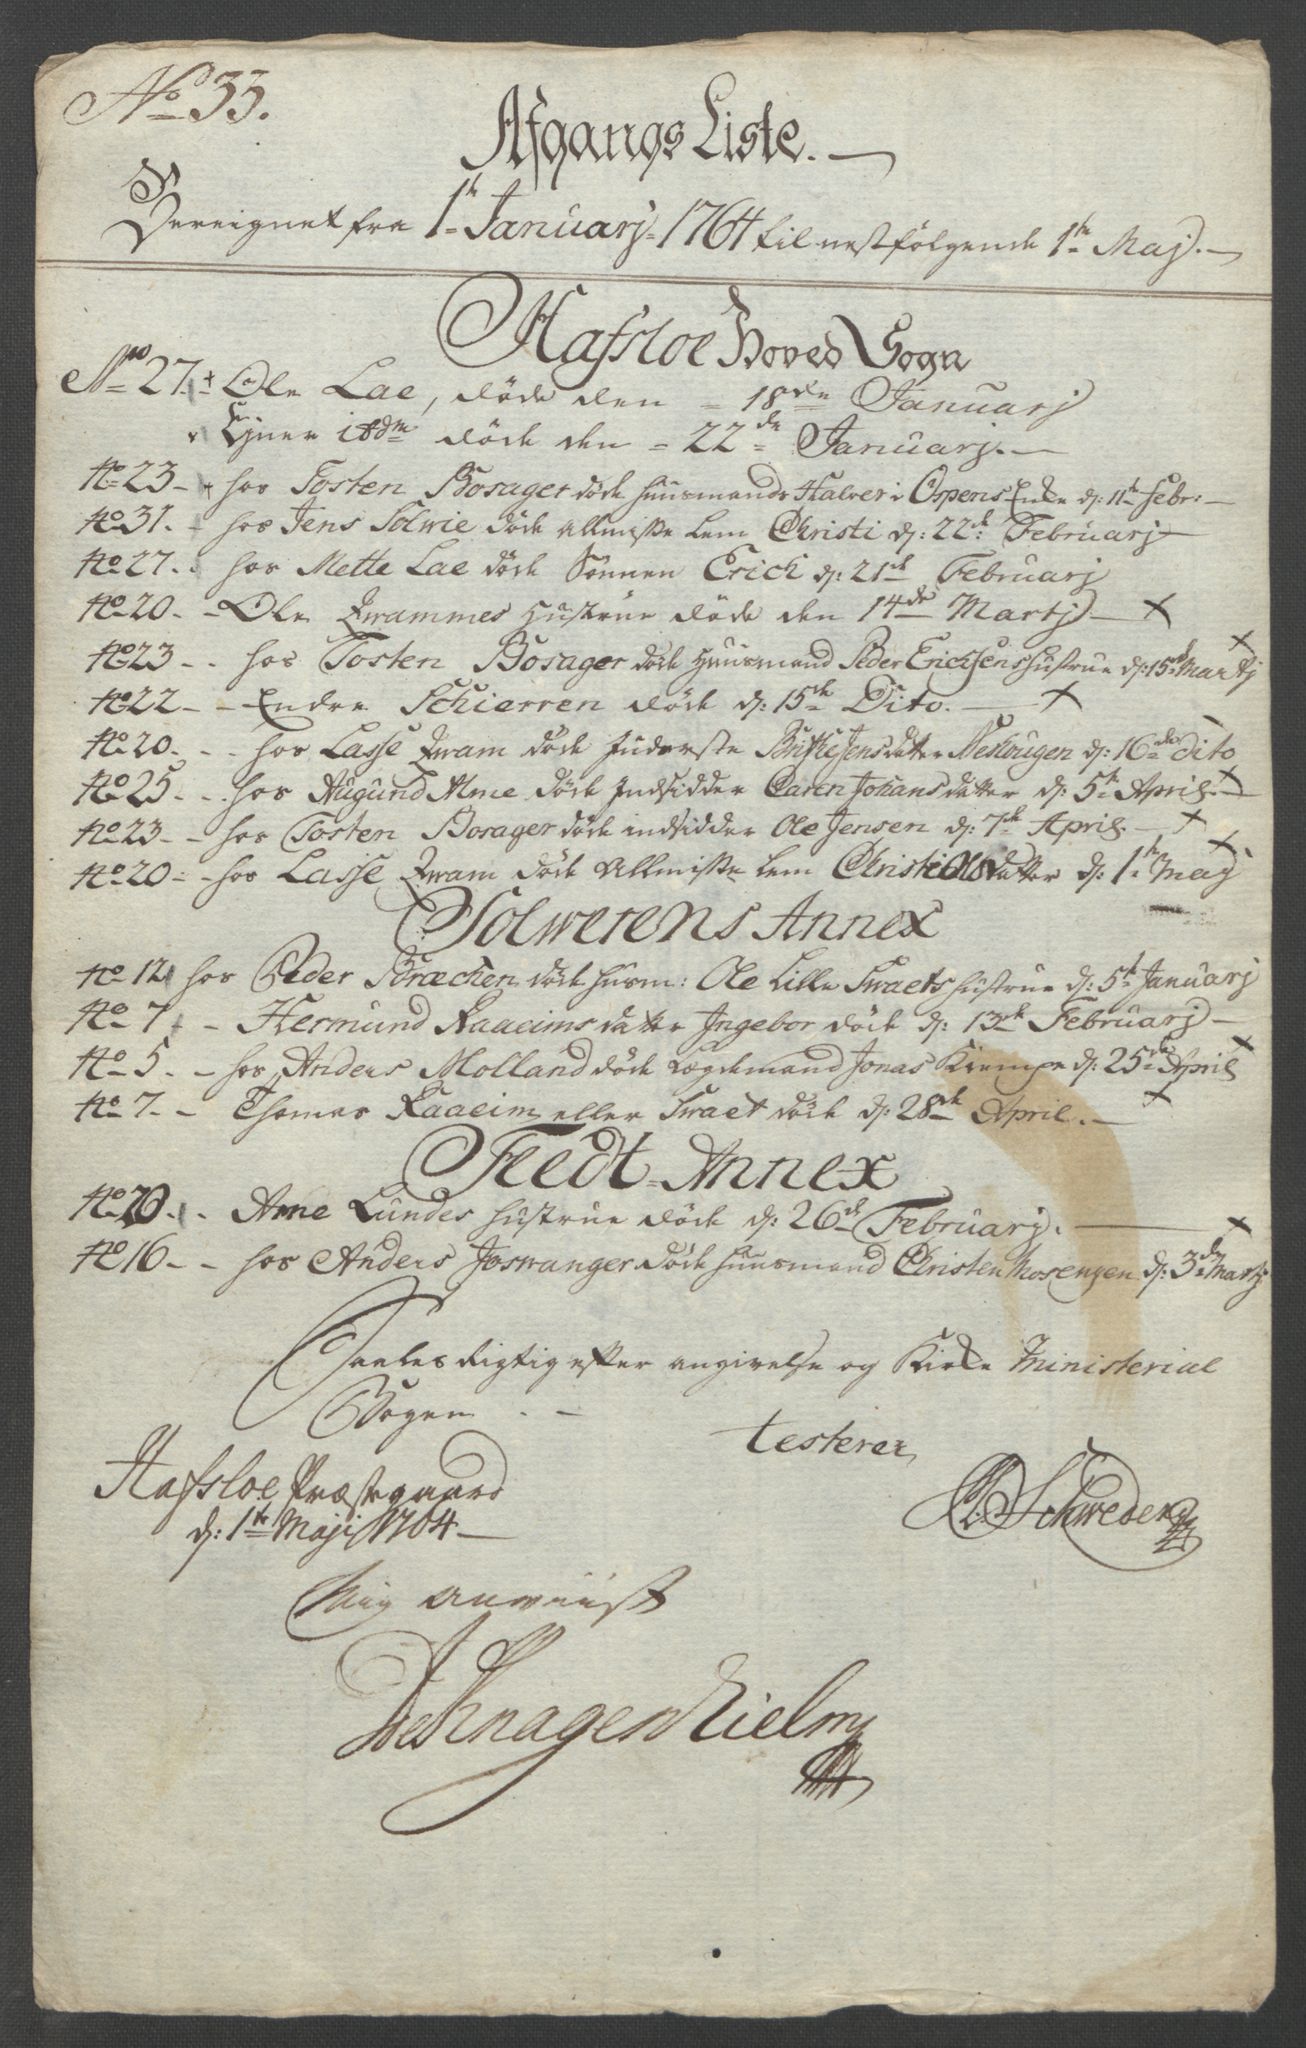 No 33.
Afgangs Liste.
Bereignet fra 1te Januarj 1764 til nestfølgende 1te Maj.
Hafsloe Hoved Sogn
No 27. + Ole Lae, døde den 18de Januarj
Ejner døde den 22de Januarj.
No 23 - hos Tosten Bosager døde Huusmands Halver i Ospens Enke d: 11te Febr:
No 31. - hos Jens Solwie døde Allmisse Lem Christi d: 22de Februarj
No 27. - hos Mette Lae døde Sønnen Erich d: 21de Februarj
No 20. - Ole Kwammes Hustrue døde den 14de Martj - x
No 23 - hos Tosten Bosager døde Huusmand Peder Erichsens Hustrue d: 15de Martj x
No 22 - Endre Schierren døde d: 15de Dito. - x
No 20. - hos Lasse Kwam døde Inderste Jensdatter Neshougen d: 16de dito
No 25 - hos Augund Alme døde Indsidder Caren Johansdatter d: 5te April. x
No 23 - hos Tosten Bosager døde indsidder Ole Jensen d: 7de April. - x
No 20 - hos Lasse Kwam døde Allmisse Lem Christi Olsdatter d: 1te Maj x
Solwerens Annex
No 12 hos Peder Bræchen døde Husm: Ole Lille Swaets Hustrue d: 5te Januarj
No 7 - Hermund Kaaeims datter Ingebor døde d: 13de Februarj
No 5. - hos Anders Molland døde Lægdemand Jonas Kiempe d: 25de April x
No 7. - Thomas Kaaeim eller Swaet døde d: 28de April. - x
Feedt Annex
No 20. - Arne Lundes Hustrue døde d: 26de Februarj. x
No 16 - hos Anders Joswanger døde Huusmand Christen Mosengen d: 3de Martj
Saaledes Rigtig efter angivelse og Kirke Ministerial
Bogen
testerer
Hafsloe Præstegaard
d: 1te Maji 1764
Schweder
Mig anviist